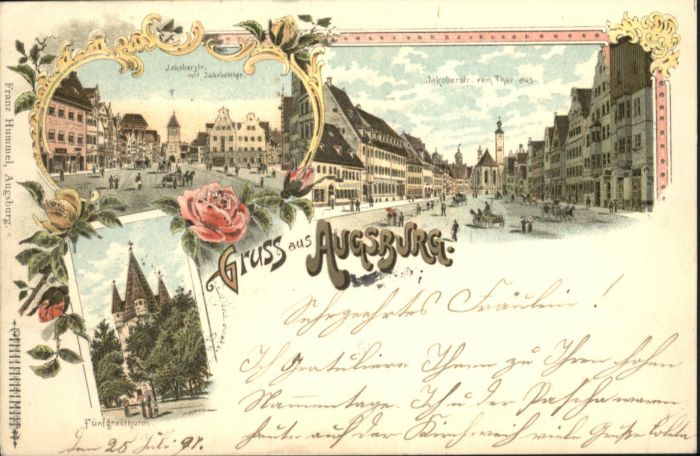 Jakoberstr.
mit Jakoberthor.
Jakoberstr. vom Thor aus.
Franz Hummel, Augsburg.
Gruss aus Augsburg.
Fünfgradthurm
Sehrgeehrtes Fräulein!
Ich Gratuliere Ihnen zu Ihren hohen
Nammentage. Ich u der Pascha waren
heute auf der Kirchweih viele Grüße
den 25 Juli 97.